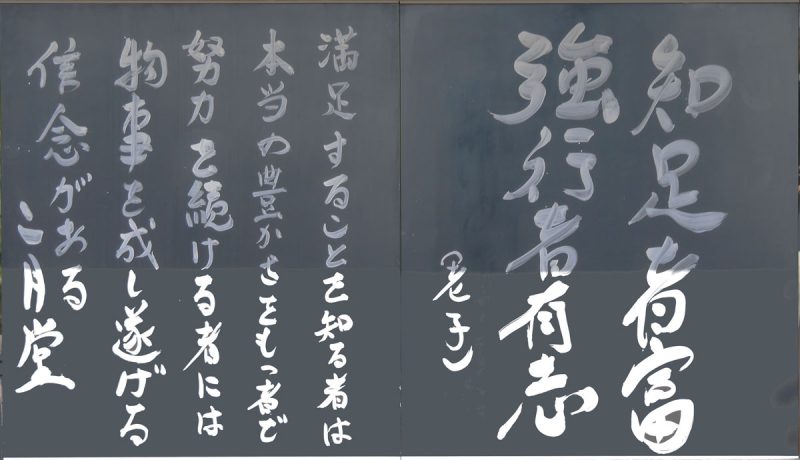 知足者富
強行者有志
(老子)
満足することを知る者は
本当の豊かさをもつ者で
努力を続ける者には
物事を成し遂げる
信念がある
二月堂